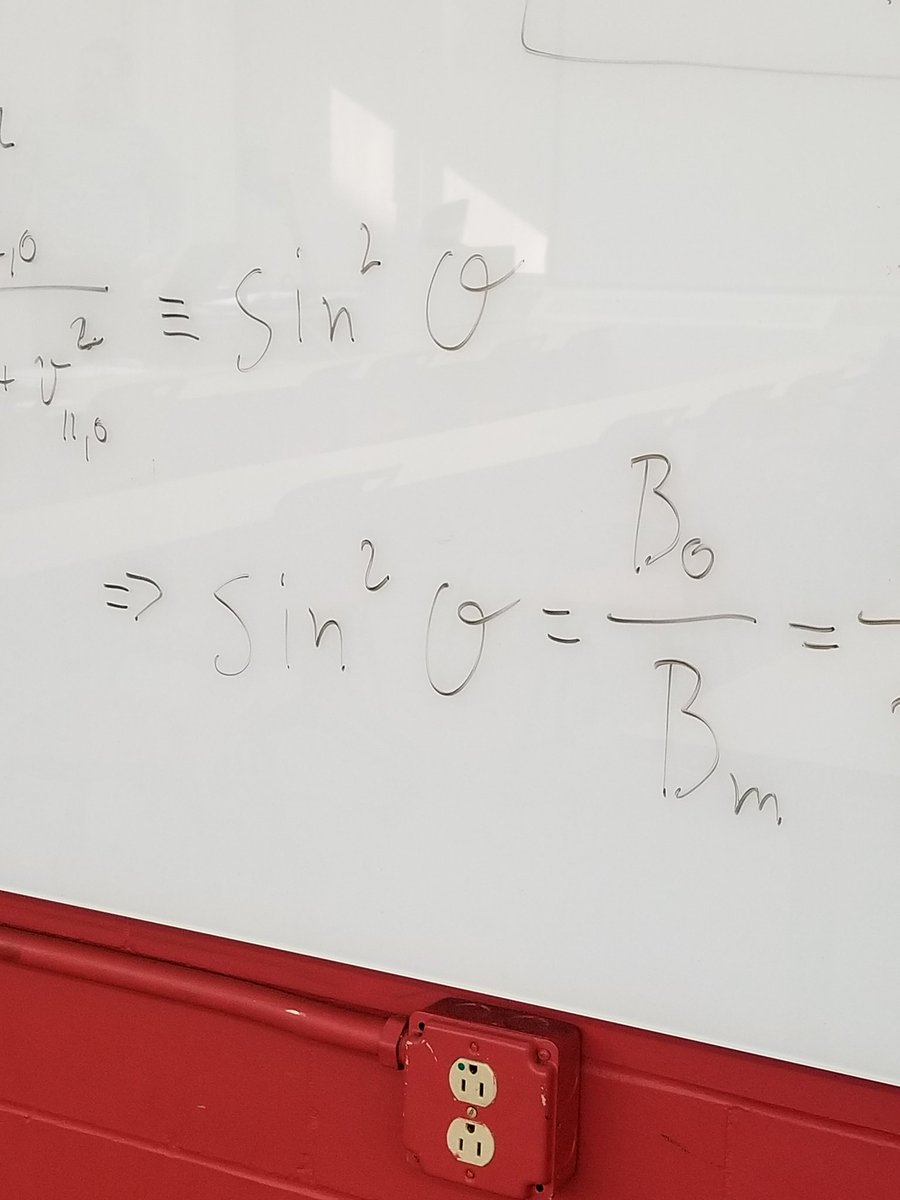 + v²∥,0 ≡ sin² θ
⇒ sin² θ = B₀ / Bₘ =